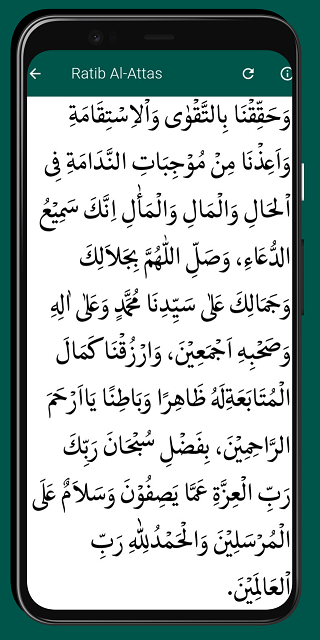 Ratib Al-Attas
وَحَقِّقْنَا بِالتَّقْوٰى وَاْلاِسْتِقَامَةِ
وَاَعِذْنَا مِنْ مُوْجِبَاتِ النَّدَامَةِ فِى
اْلحَالِ وَالْمَالِ وَالْمَأٰلِ اِنَّكَ سَمِيْعُ
الدُّعَاءِ، وَصَلِّ اللّٰهُمَّ بِجَلاَلِكَ
وَجَمَالِكَ عَلٰى سَيِّدِنَا مُحَمَّدٍ وَعَلٰى اٰلِهِ
وَصَحْبِهِ اَجْمَعِيْنَ، وَارْزُقْنَا كَمَالَ
الْمُتَابَعَةِلَهُ ظَاهِرًا وَبَاطِنًا يَااَرْحَمَ
الرَّاحِمِيْنَ، بِفَضْلِ سُبْحَانَ رَبِّكَ
رَبِّ الْعِزَّةِ عَمَّا يَصِفُوْنَ وَسَلاَمٌ عَلَى
الْمُرْسَلِيْنَ وَالْحَمْدُلِلّٰهِ رَبِّ
اْلعَالَمِيْنَ.